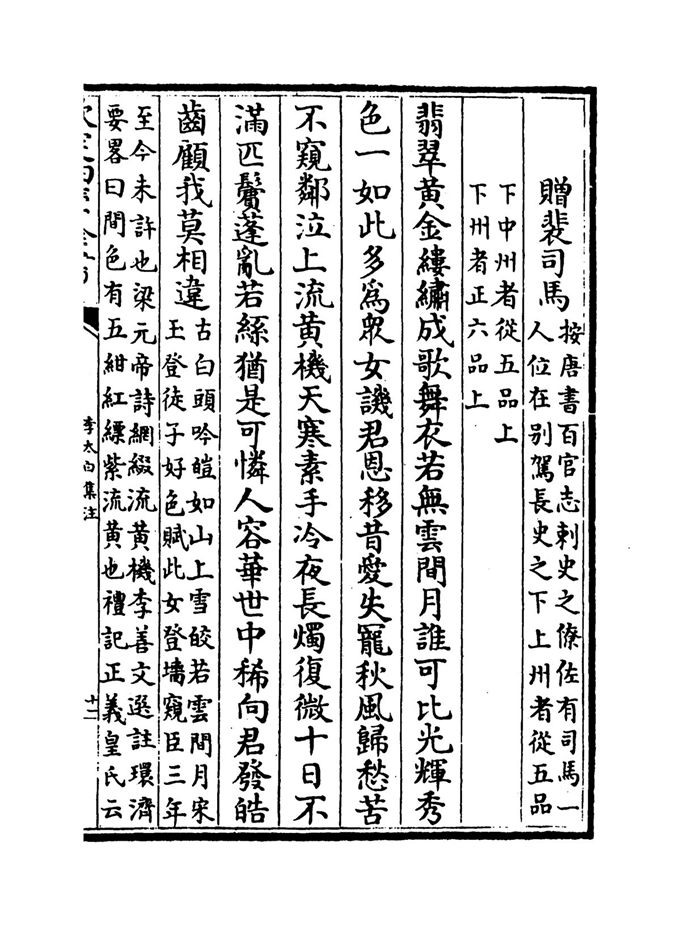 贈裴司馬
按唐書百官志刺史之僚佐有司馬一
人位在別駕長史之下上州者從五品
下中州者從五品上
下州者正六品上
翡翠黃金縷繡成歌舞衣若無雲間月誰可比光輝秀
色一如此多為衆女譏君恩移昔愛失寵秋風歸愁苦
不窺鄰泣上流黄機天寒素手冷夜長燭復微十日不
滿匹鬢蓬亂若絲猶是可憐人容華世中稀向君發皓
齒顧我莫相違
古白頭吟皚如山上雪皎若雲間月宋
玉登徒子好色賦此女登墻窺臣三年
至今未許也梁元帝詩網綴流黄機李善文選註環濟
要畧曰間色有五紺紅縹紫流黄也禮記正義皇氏云
李太白集注
十二